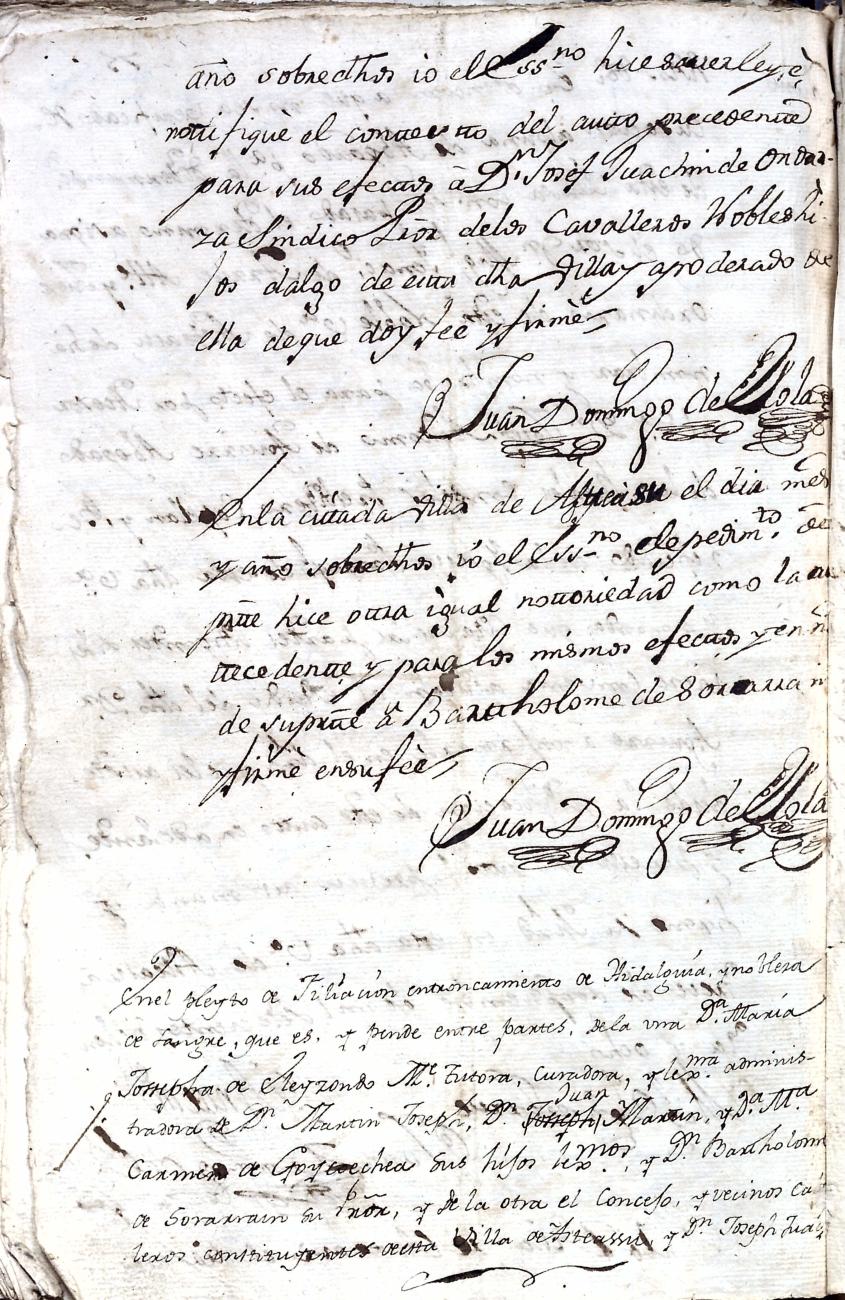 año sobredhos io el Essno hice saver ley, è
nottifiquè el conttentto del autto precedentte
para sus efecttos â Dn Josef Juachin de Ondar-
za Sindico Pror. delos Cavalleros Nobles hi-
jos dalgo de esta dha Villa y apoderado de
ella de que doy feè y firmè
Juan Domingo de Ysola
Enla cittada villa de Asteasu el dia mes
y año sobredhos iò el Essno. de pedimto. de
partte hice ottra igual nottoriedad como la an
ttecedentte y para los mismos efecttos y en
de supartte â Bartholome de Sorarrain
yfirmè ensufeè
Juan Domingo de Ysola
Enel pleyto de Filiación entroncamiento de Hidalguía, y nobleza
de sangre, que es, y pende entre partes, dela vna Da. María
Josepha de Leyzondo Me. tutora, curadora, y lexma. adminis-
tradora de Dn. Martin Joseph, Dn. Joseph Juan Martín, y Da. Ma
Carmen de Goycoechea sus hijos lexmos., y Dn. Bartholome
de Sorarrain su Pror, y de la otra el Concejo, y vecinos Cal
leros constituyentes de esta Villa de Asteassu, y Dn. Joseph Juac